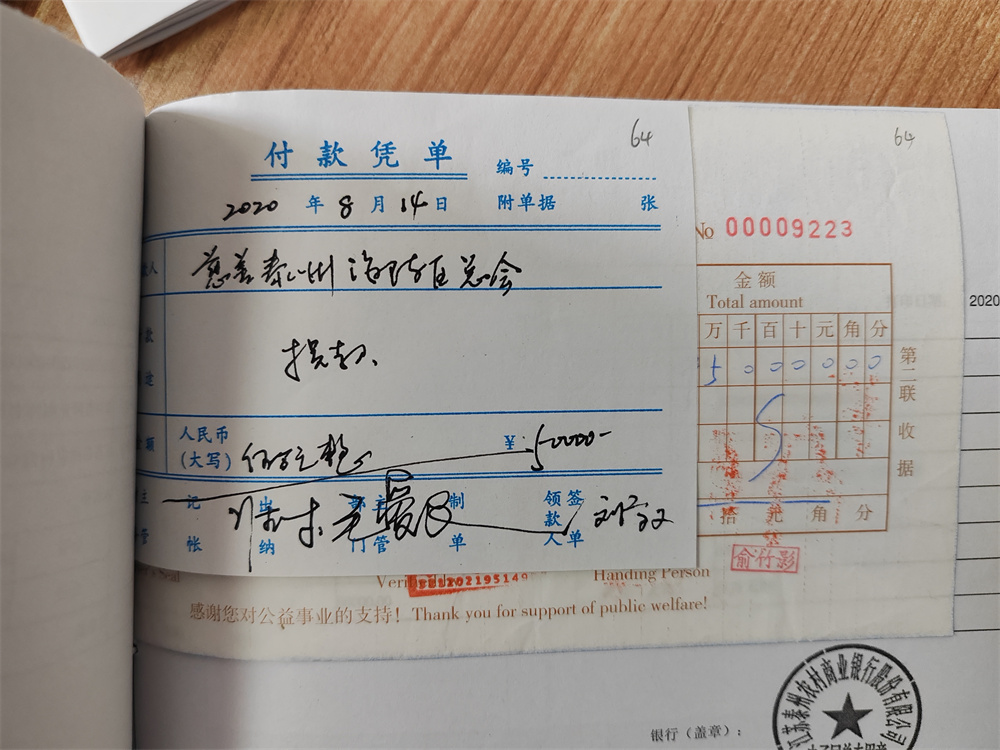 64
付款凭单
编号
2020年8月14日
附单据 张
人
慈善泰州海陵区总会
款
途
捐款
额
人民币
(大写)
伍万元整
¥:50000-
主
管
记
帐
出
纳
部
门
主
管
制
单
领款人
签
单
64
No 00009223
金额
Total amount
万千百十元角分
5 0 0 0 0 0 0
第二联收据
拾 元 角 分
俞竹影
Handing Person
感谢您对公益事业的支持! Thank you for support of public welfare!
2020
江苏泰州农村商业银行股份有限公司
银行(盖章):